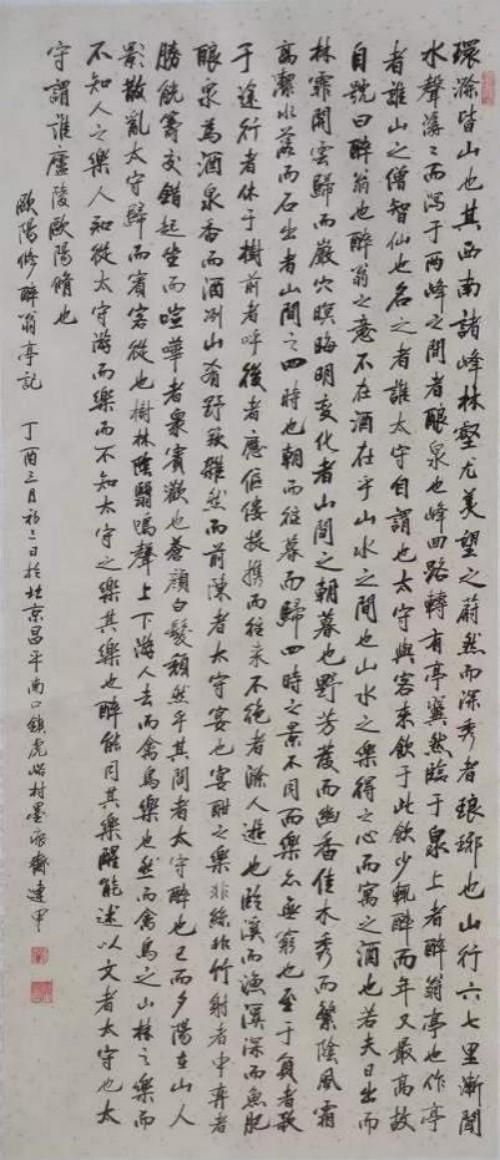 環滁皆山也其西南諸峰林壑尤美望之蔚然而深秀者琅琊也山行六七里漸聞
水聲潺〻而瀉于兩峰之間者釀泉也峰回路轉有亭翼然臨于泉上者醉翁亭也作亭
者誰山之僧智仙也名之者誰太守自謂也太守與客來飲于此飲少輒醉而年又最高故
自號曰醉翁也醉翁之意不在酒在乎山水之間也山水之樂得之心而寓之酒也若夫日出而
林霏開雲歸而巖穴暝晦明變化者山間之朝暮也野芳發而幽香佳木秀而繁陰風霜
高潔水落而石出者山間之四時也朝而往暮而歸四時之景不同而樂亦無窮也至于負者歌
于途行者休于樹前者呼後者應傴僂提攜而往來不絕者滁人遊也臨溪而漁溪深而魚肥
釀泉為酒泉香而酒冽山肴野蔌雜然而前陳者太守宴也宴酣之樂非絲非竹射者中弈者
勝觥籌交錯起坐而喧嘩者衆賓歡也蒼顏白髮頹然乎其間者太守醉也已而夕陽在山人
影散亂太守歸而賓客從也樹林陰翳鳴聲上下游人去而禽鳥樂也然而禽鳥之山林之樂而
不知人之樂人知從太守游而樂而不知太守之樂其樂也醉能同其樂醒能述以文者太守也太
守謂誰廬陵歐陽脩也
歐陽修醉翁亭記 丁酉三月初二日於北京昌平南口鎮虎峪村墨痕齋建甲